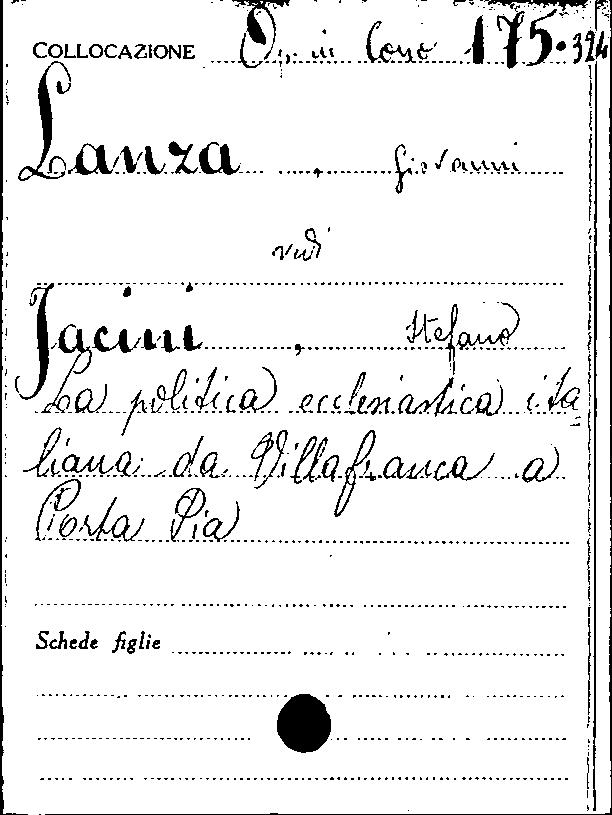 COLLOCAZIONE Op. in Corso 175.324
Lanza, Giovanni
vedi
Jacini, Stefano
La politica ecclesiastica ita=
liana da Villafranca a
Porta Pia
Schede figlie